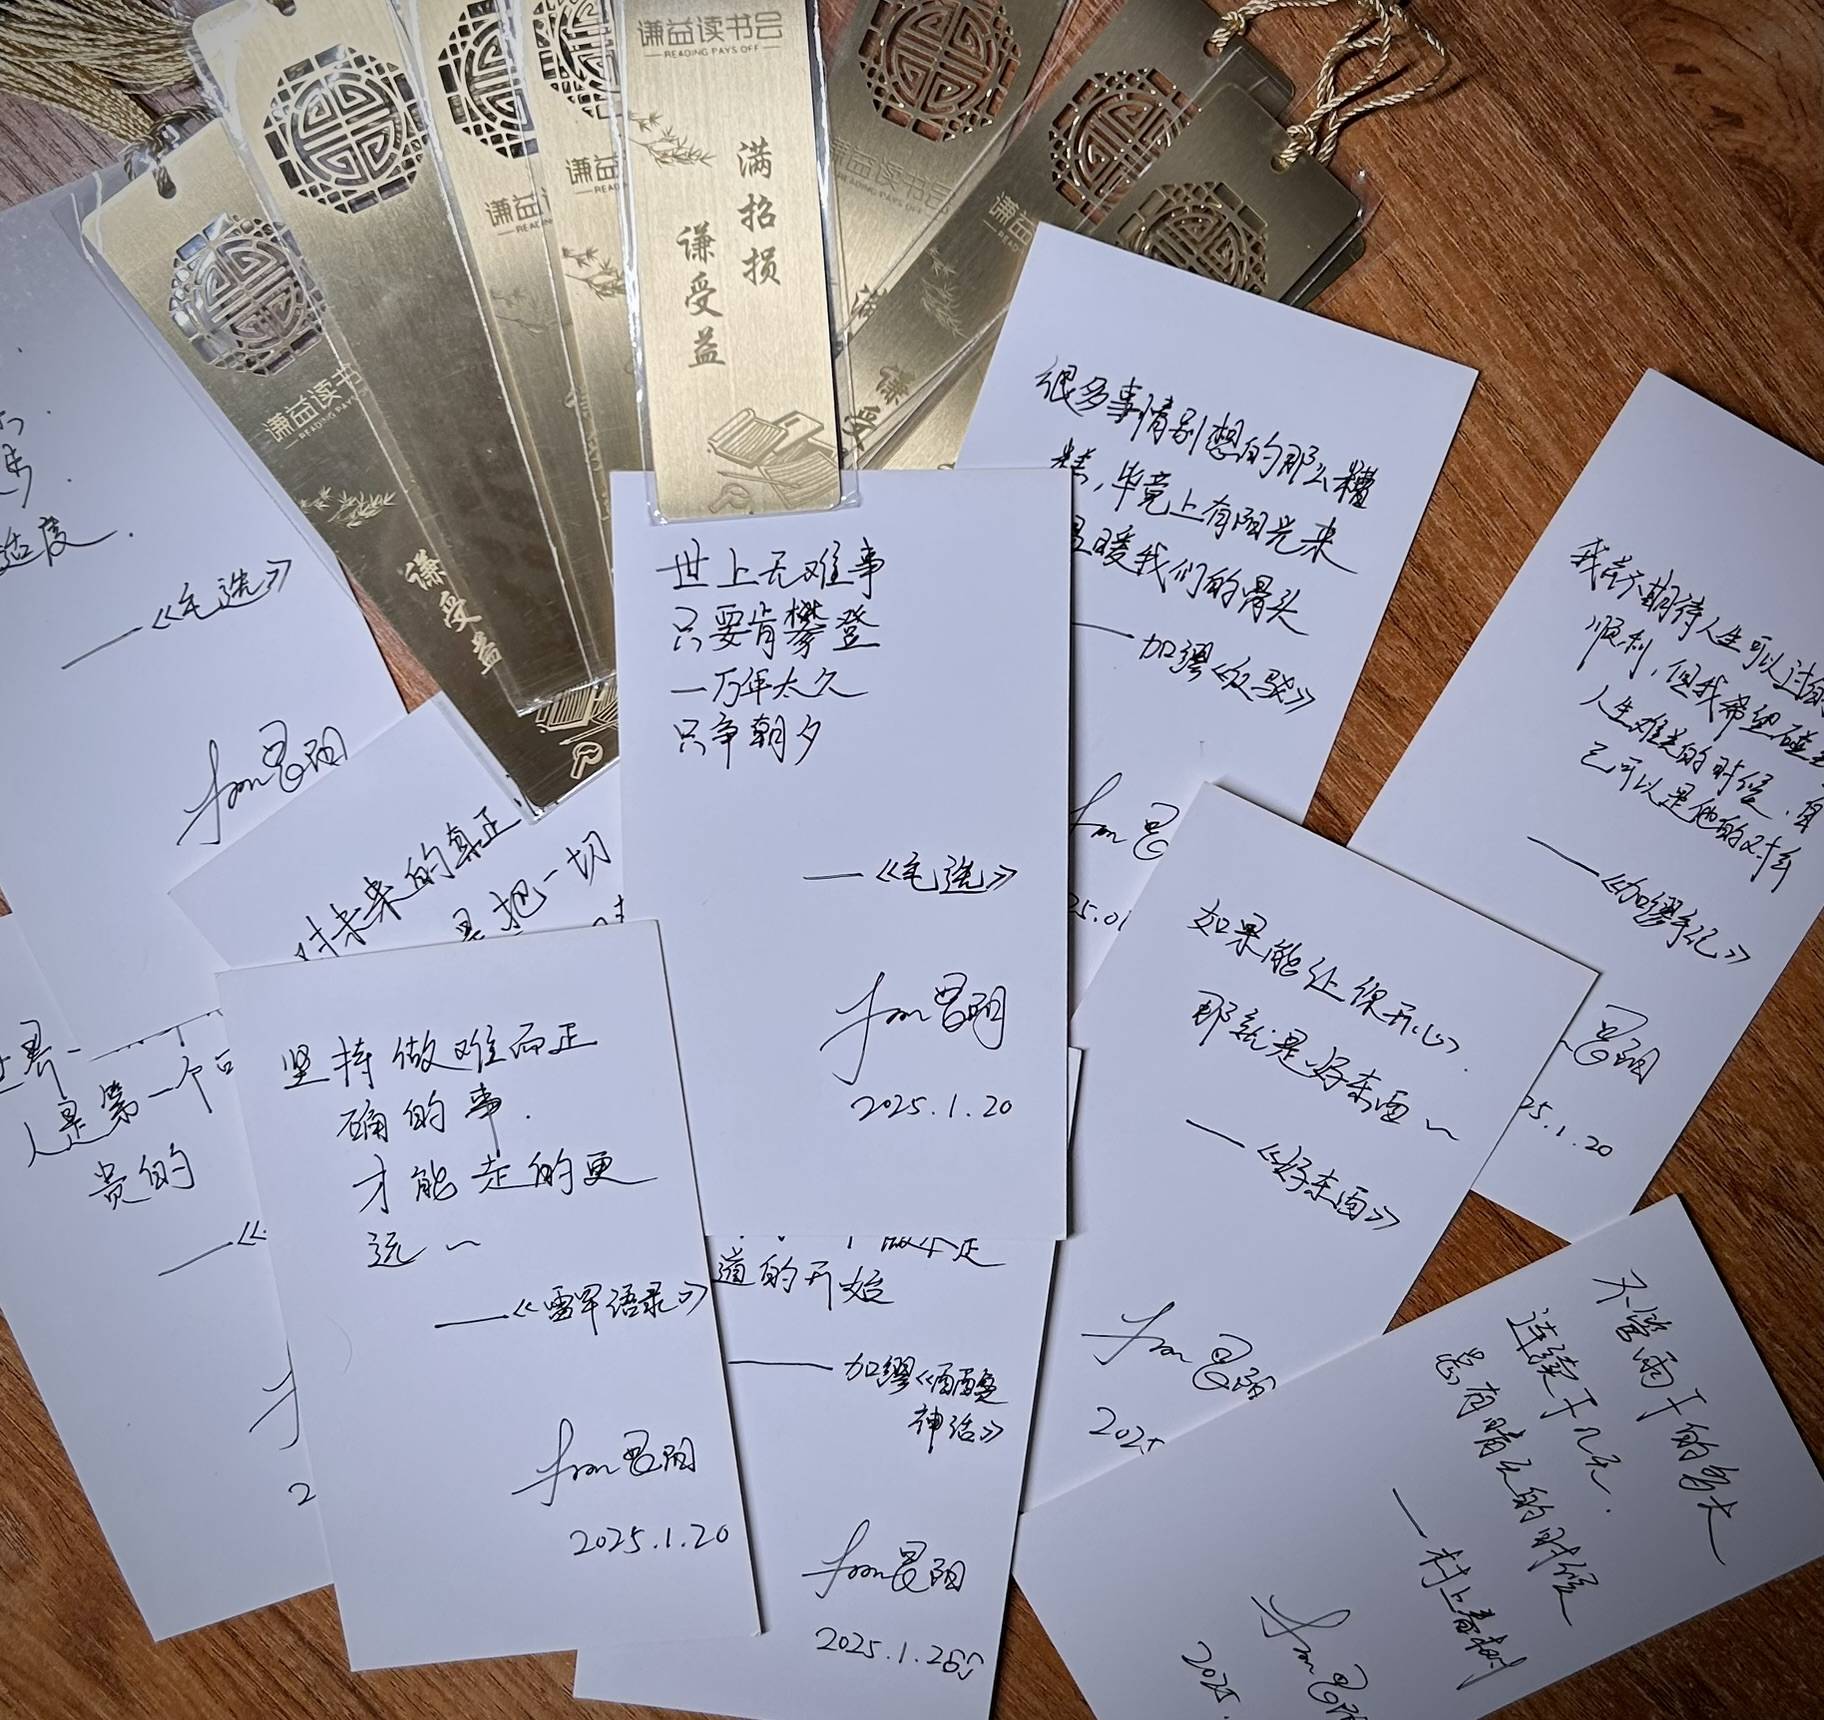 谦益读书会
READING PAYS OFF
满招损
谦受益
谦益读书
谦受益
谦益读书会
READING PAYS OFF
适度.
——《毛选》
from 昱阳
对未来的真正
是把一切
世上无难事
只要肯攀登
一万年太久
只争朝夕
——《毛选》
from 昱阳
2025.1.20
很多事情别想的那么糟
糕,毕竟上有阳光来
温暖我们的骨头
——加缪《反驳》
from
我并不期待人生可以过的
顺利,但我希望碰到
人生难关的时候,自
己可以是他的对手
——《加缪手记》
昱阳
25.1.20
如果能让你开心,
那就是好东西~
——《好东西》
from 昱阳
2025
人是第一个可
贵的
坚持做难而正
确的事.
才能走的更
远~
——《雷军语录》
from 昱阳
2025.1.20
道的开始
——加缪《西西弗
神话》
from 昱阳
不管雨下的多大
连续下几天.
总有晴天的时候
——村上春树
from 昱阳
2025.